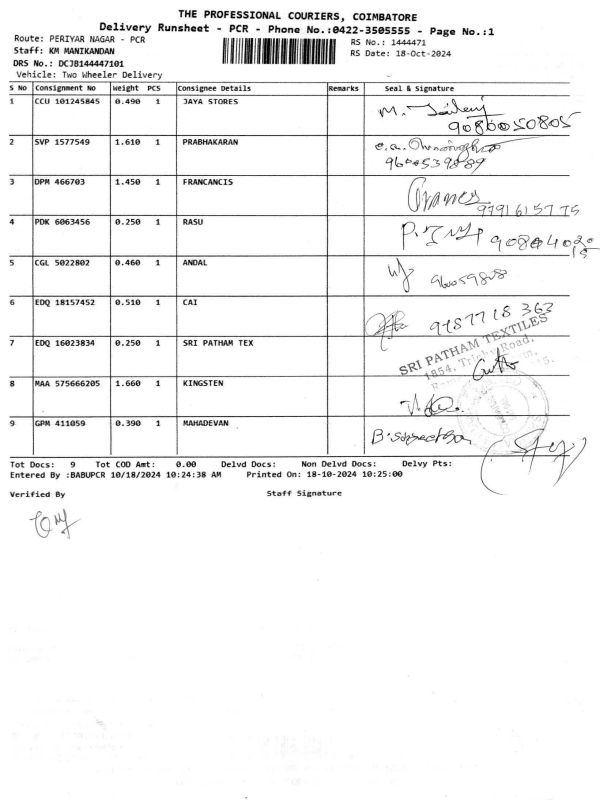 THE PROFESSIONAL COURIERS, COIMBATORE
Delivery Runsheet - PCR - Phone No.:0422-3505555 - Page No.:1
Route: PERIYAR NAGAR - PCR
RS No.: 1444471
Staff: KM MANIKANDAN
RS Date: 18-Oct-2024
DRS No.: DCJB144447101
Vehicle: Two Wheeler Delivery
S No Consignment No Weight PCS Consignee Details Remarks Seal & Signature
1 CCU 101245845 0.490 1 JAYA STORES
9080050805
2 SVP 1577549 1.610 1 PRABHAKARAN
3 DPM 466703 1.450 1 FRANCANCIS
9791615775
4 PDK 6063456 0.250 1 RASU
5 CGL 5022802 0.460 1 ANDAL
6 EDQ 18157452 0.510 1 CAI
9787718363
7 EDQ 16023834 0.250 1 SRI PATHAM TEX
SRI PATHAM TEXTILES
1854, Trichy Road,
8 MAA 575666205 1.660 1 KINGSTEN
9 GPM 411059 0.390 1 MAHADEVAN
Tot Docs: 9 Tot COD Amt: 0.00 Delvd Docs: Non Delvd Docs: Delvy Pts:
Entered By :BABUPCR 10/18/2024 10:24:38 AM Printed On: 18-10-2024 10:25:00
Verified By Staff Signature